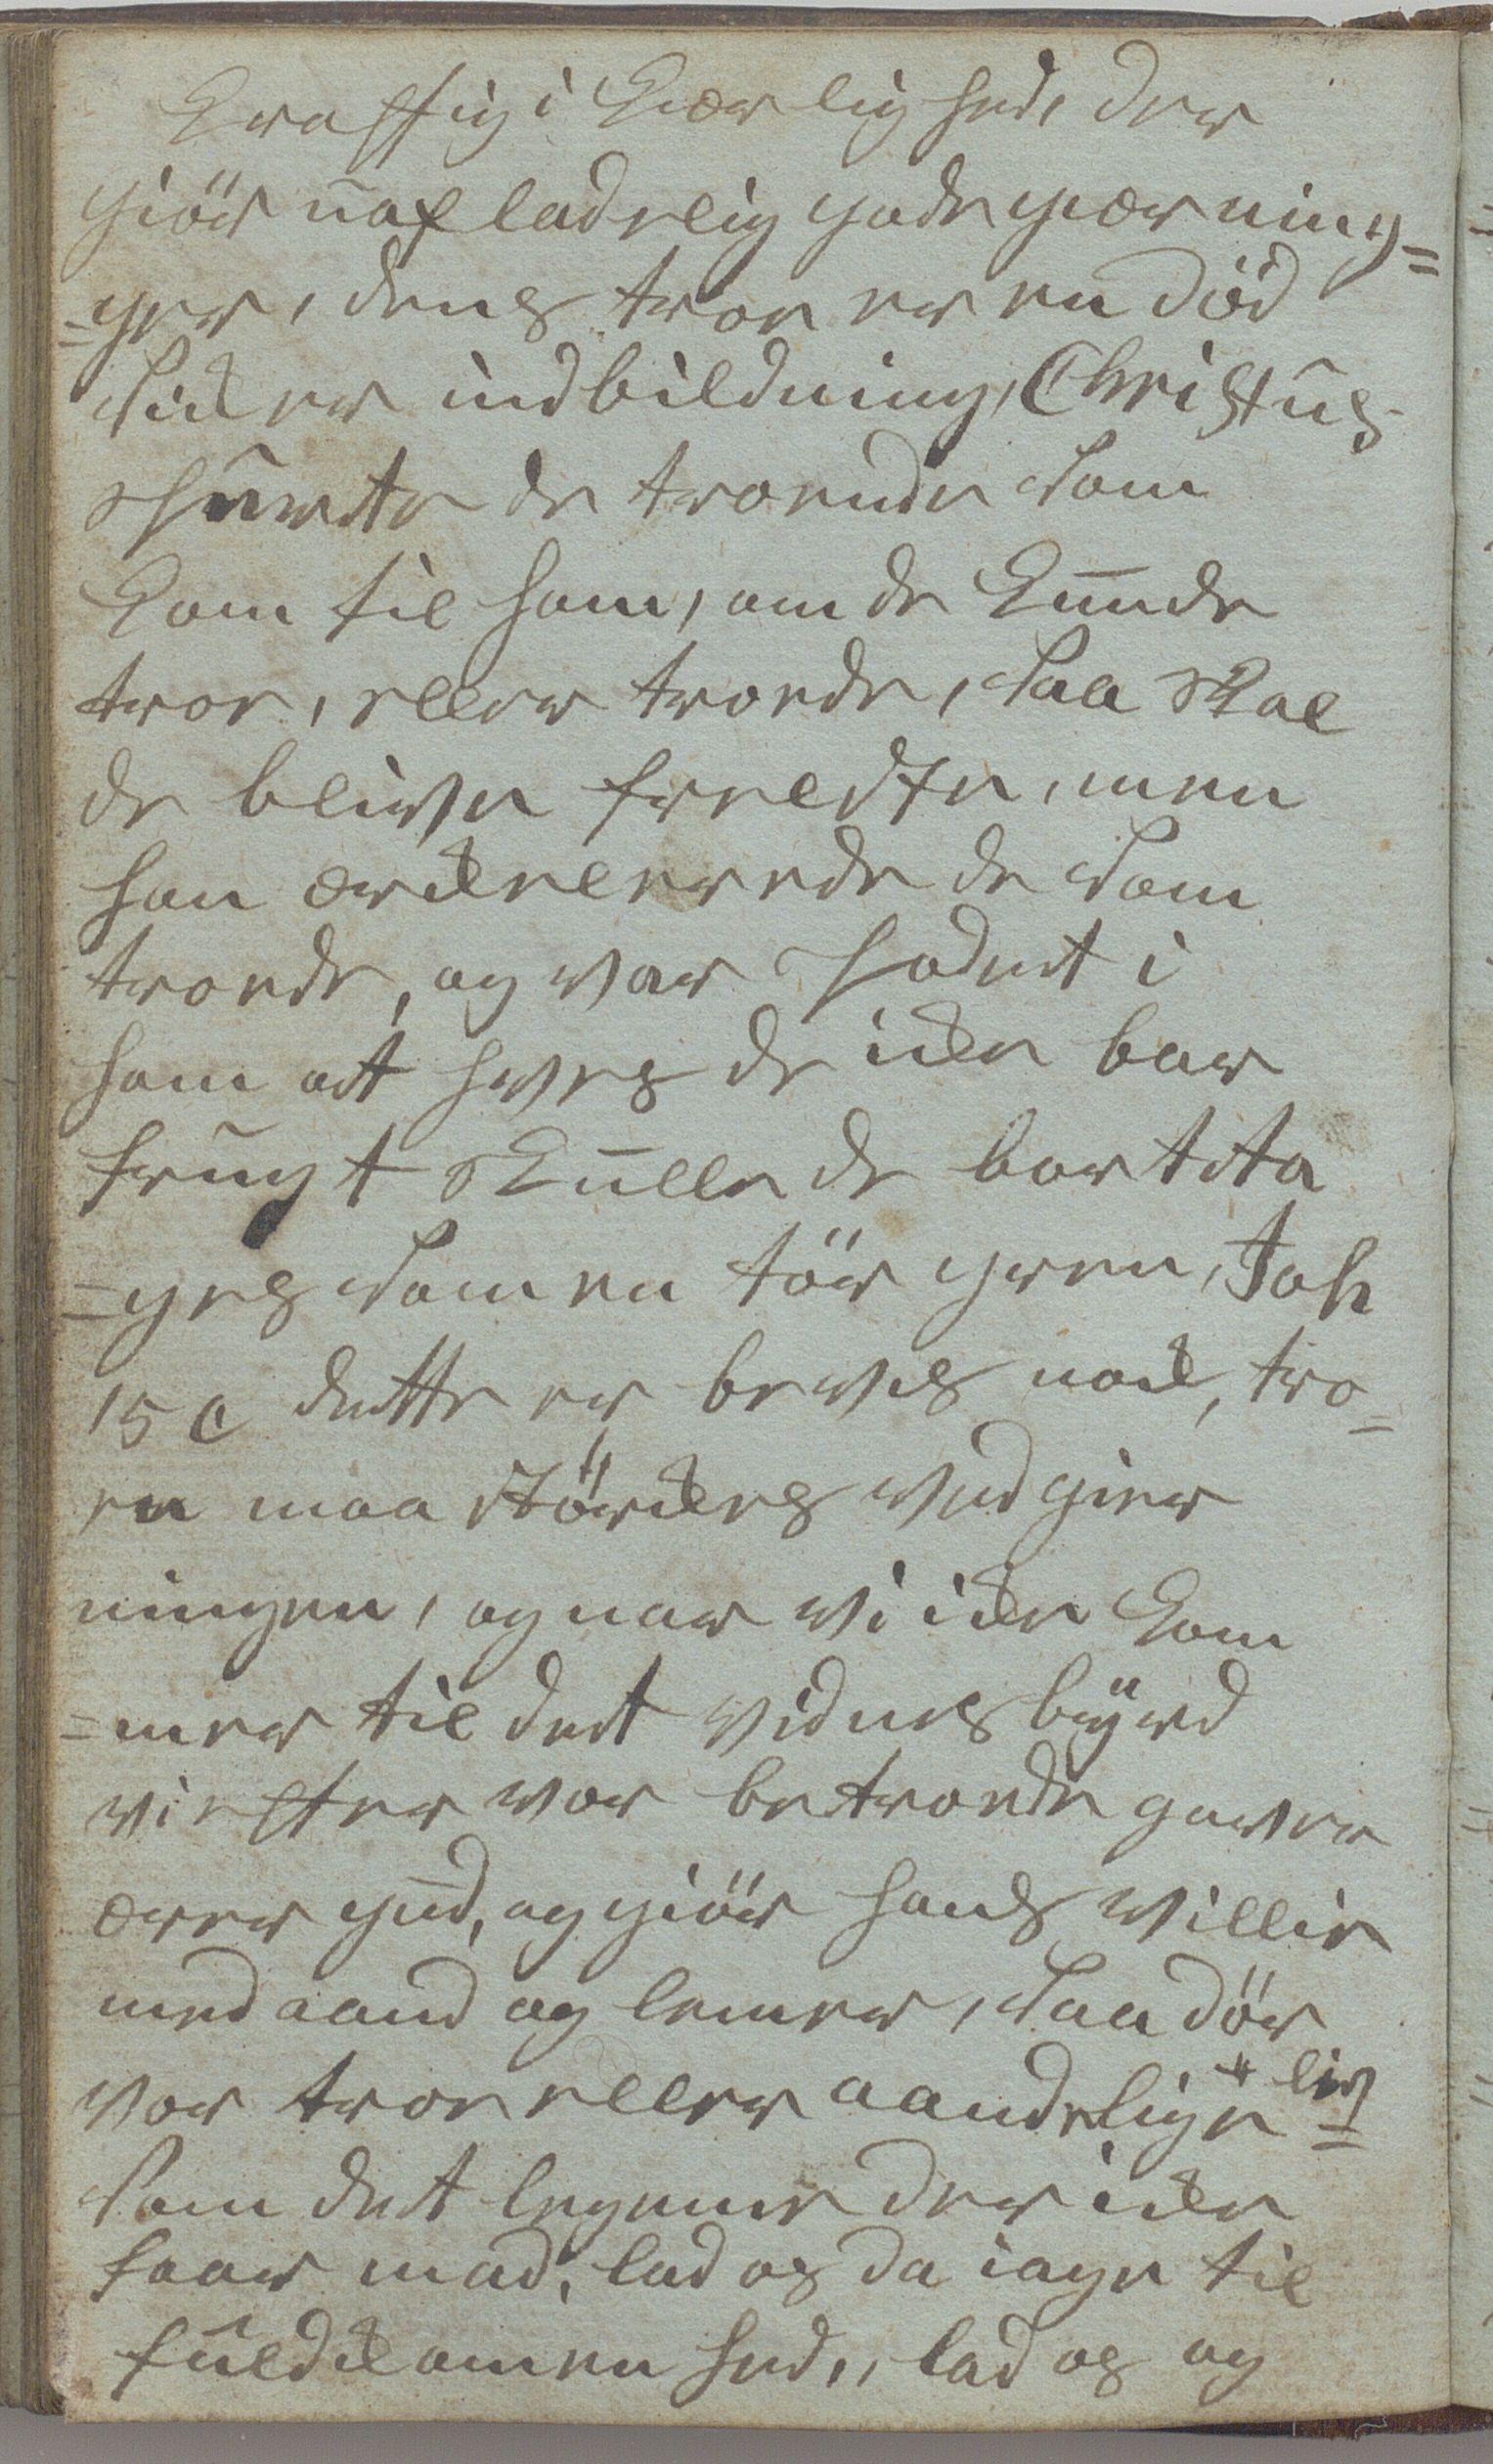 Kraftig i Kiærlighed, der
giör uafladelig gode gierning=
=ger, dens troe er en död
sicker indbildning, Christus
spurte de troende som
kom til ham, om de kunde
troe, eller troede, saa skal
de blive frelste, men
han erklerede de som
troede, og var podet i
ham at hves de icke bar
frugt skulle de borttta
=ges som en tör green, Joh
15 c dette er beves nock, tro=
en maa störckes ved gier
ningen, og naar vi icke kom
=mer til det vidnesbyrd
vi efter vor betroede gaver
ærer gud, og giör hans villie
med aand og lemer, saa dör
vor troe eller aandelige * liv =
som det legeme der icke
faar mad, lad os da iage til
fuldkomenhed,, lad os og